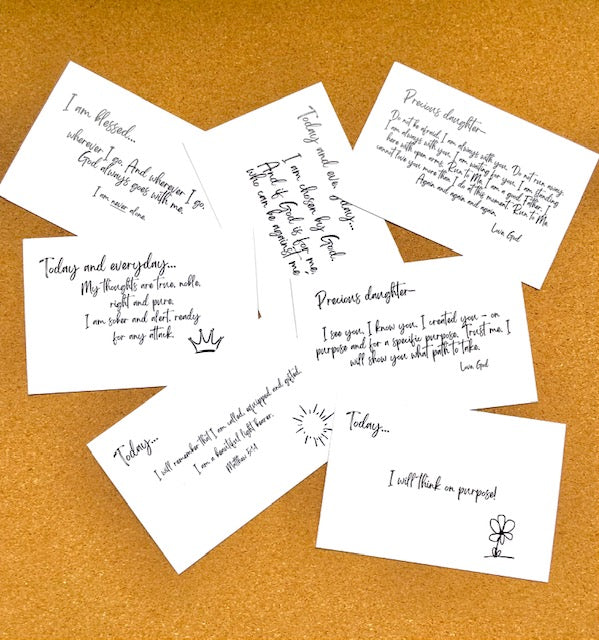 I am blessed...
wherever I go. And wherever I go,
God always goes with me.
I am never alone.
Today and everyday...
I am chosen by God.
And if God is for me,
who can be against me
Precious daughter-
Do not be afraid, I am always with you. Do not run away,
I am always with you, I am waiting for you, I am standing
here with open arms. Run to Me. I am a good Father, I
cannot love you more than I do at this moment. Run to Me.
Again and again and again.
Love, God
Today and everyday...
My thoughts are true, noble,
right and pure.
I am sober and alert, ready
for any attack.
Precious daughter-
I see you, I know you, I created you - on
purpose and for a specific purpose. Trust me, I
will show you what path to take.
Love, God
Today...
I will remember that I am called, equipped and gifted.
I am a beautiful light bearer.
Matthew 5:14
Today...
I will think on purpose!